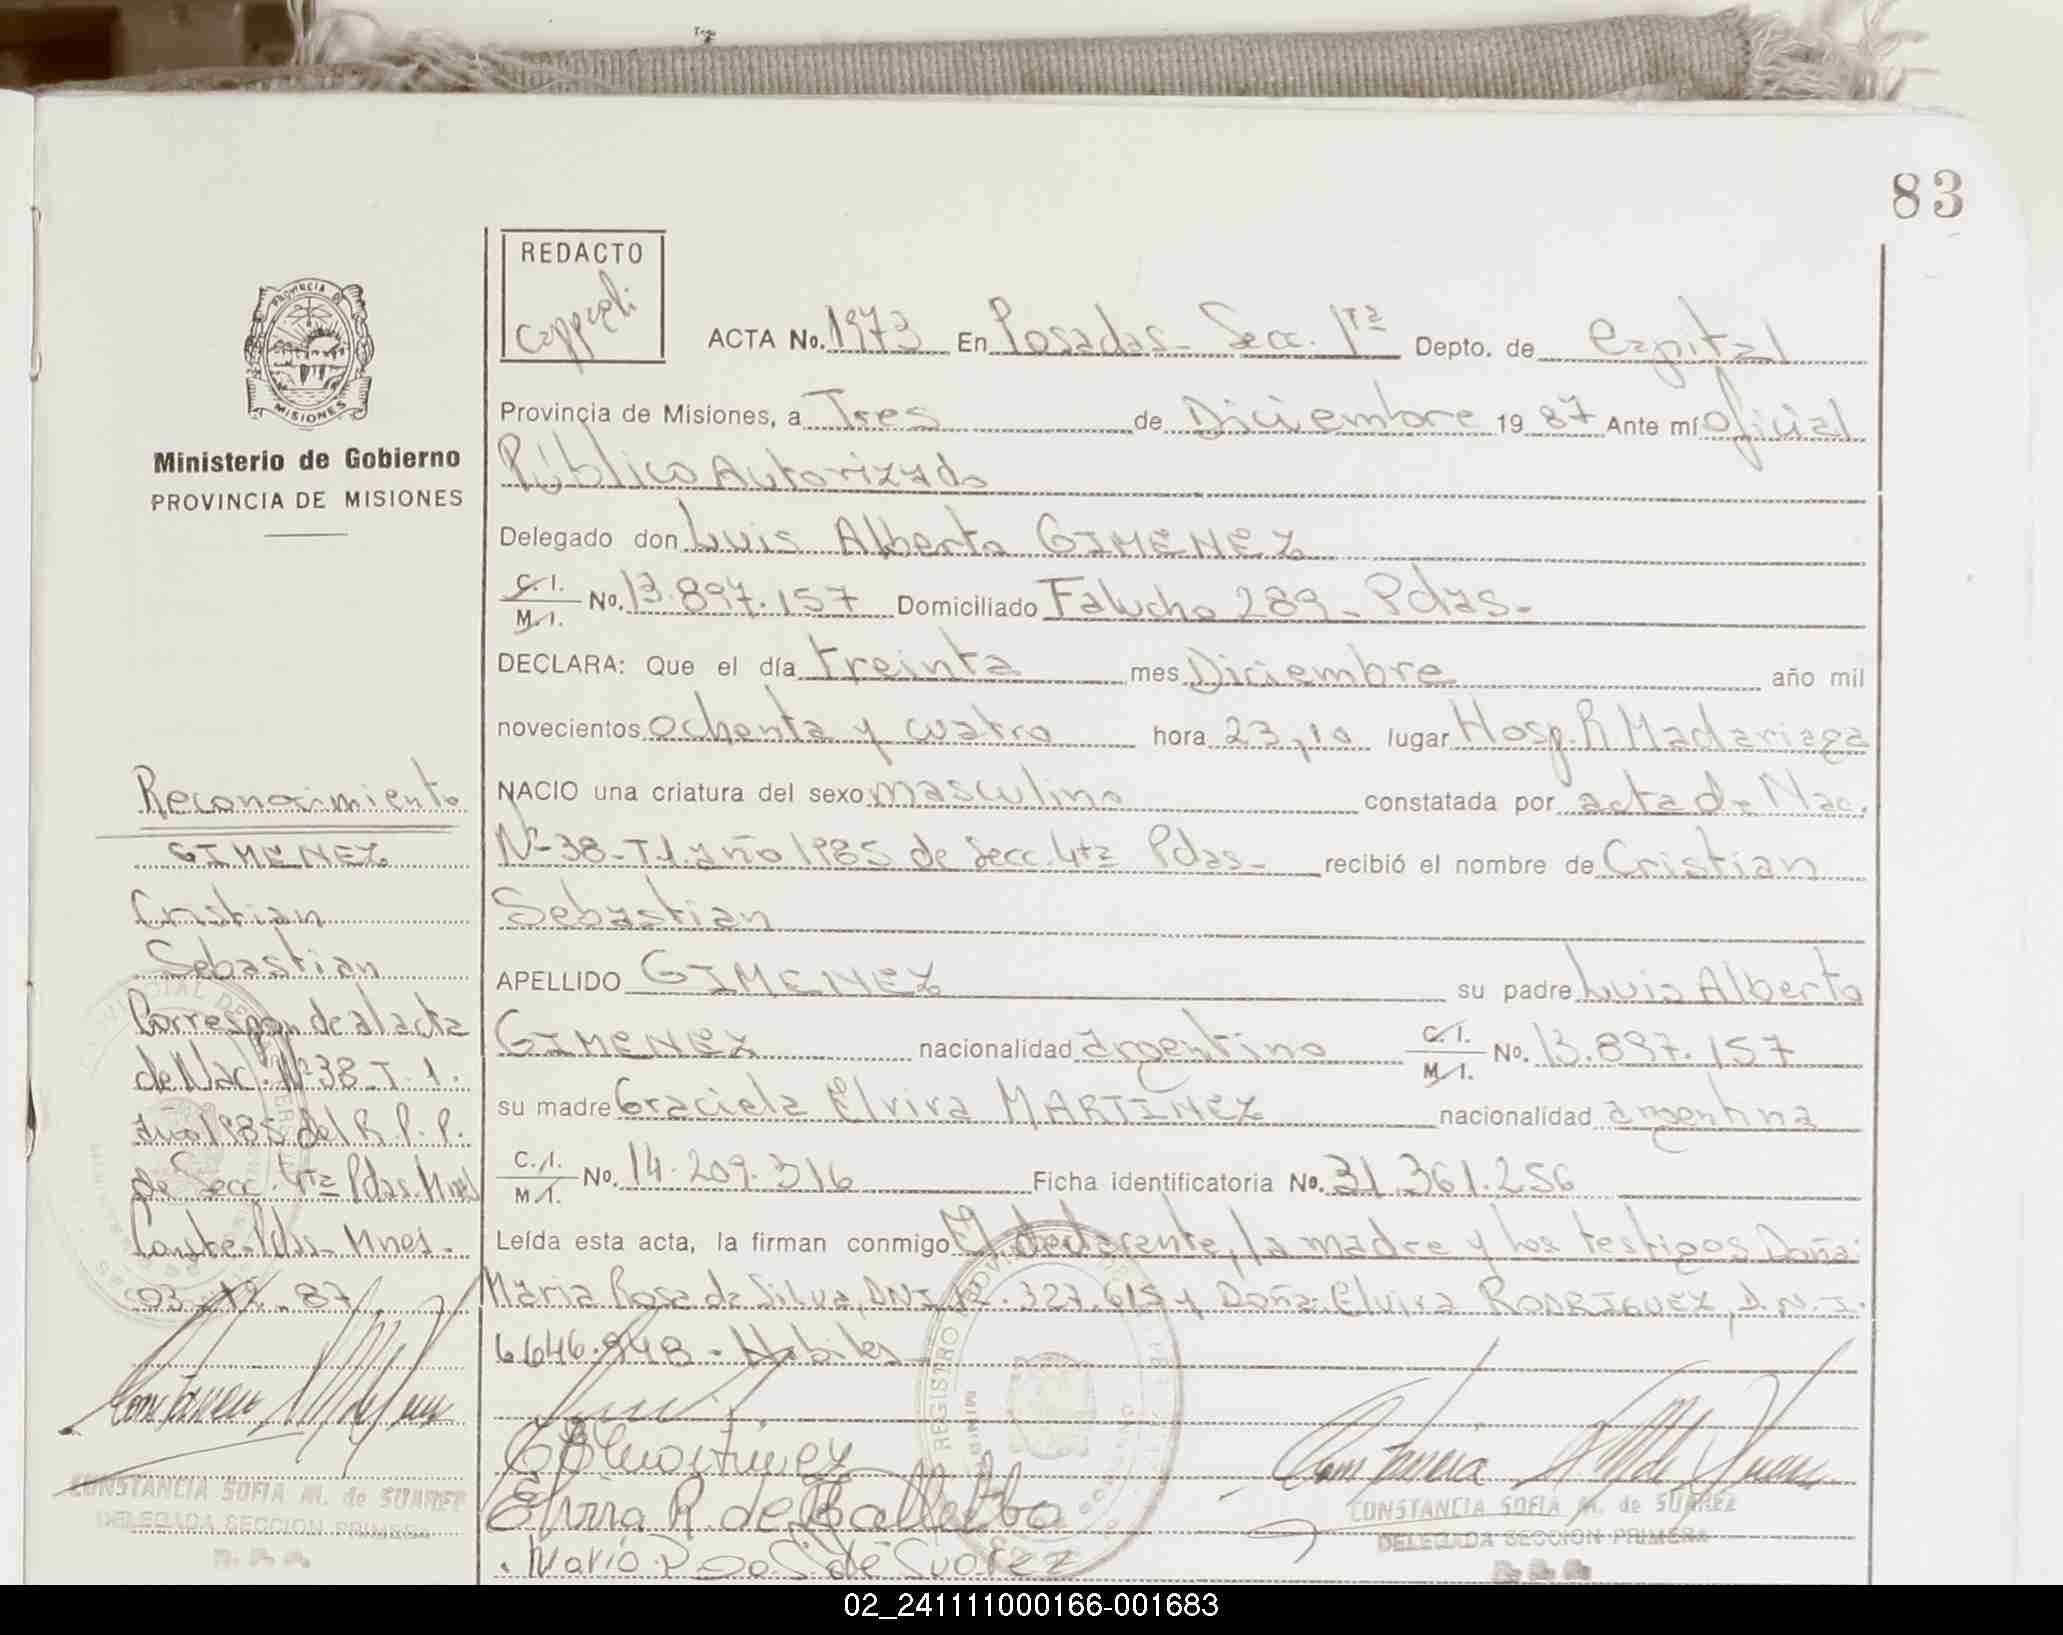 83
REDACTO
PROVINCIA DE
MISIONES
ACTA No. 1973 En Posadas - Secc. 1ra Depto. de Capital
Provincia de Misiones, a Tres de Diciembre 1987 Ante mí Oficial
Ministerio de Gobierno
PROVINCIA DE MISIONES
Público Autorizado
Delegado don Luis Alberto GIMENEZ
C.I. M.I. No. 13.897.157 Domiciliado Falucho 289 - Pdas.
DECLARA: Que el día treinta mes Diciembre año mil
novecientos ochenta y cuatro hora 23,10 lugar Hosp. R. Madariaga
NACIO una criatura del sexo masculino constatada por acta de Nac.
Nº 38 - T.1. año 1985 de Secc. 4ta Pdas - recibió el nombre de Cristian
Sebastian
APELLIDO GIMENEZ su padre Luis Alberto
GIMENEZ nacionalidad argentino C.I. M.I. No. 13.897.157
su madre Graciela Elvira MARTINEZ nacionalidad argentina
C.I. M.I. No. 14.209.316 Ficha identificatoria No. 31.361.256
Leída esta acta, la firman conmigo El declarente, la madre y los testigos Doña:
Maria Rosa da Silva, DNI. y Doña: Elvira RODRIGUEZ, D.N.I.
- Habiles
Elvira R. de
Maria de Suarez
CONSTANCIA SOFIA M. de SUAREZ
DELEGADA SECCION PRIMERA
Reconocimiento
GIMENEZ
Cristian
Sebastian
Correspon. de al acta
de Nac. Nº 38 - T. 1.
año 1985 del R.P.P.
de Secc. 4ta Pdas. Mnes
Pdas - Mnes.
03 - 12 - 87
CONSTANCIA SOFIA M. de SUAREZ
DELEGADA SECCION PRIMERA
02_241111000166-001683